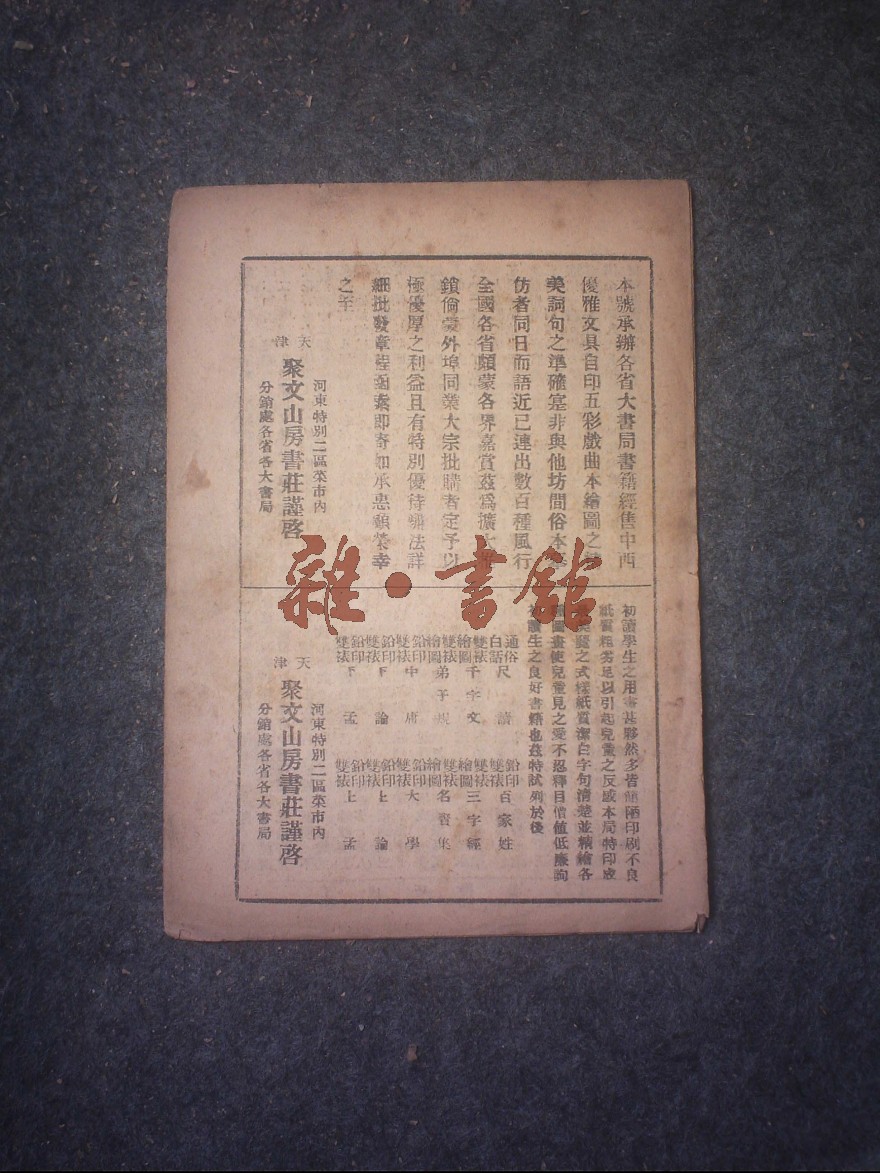 本號承辦各省大書局書籍經售中西
優雅文具自印五彩戲曲本繪圖之
美詞句之準確寔非與他坊間俗本
仿者同日而語近已連出數百種風行
全國各省頗蒙各界嘉賞茲爲擴大
鎖倘蒙外埠同業大宗批購者定予以
極優厚之利益且有特別優待辦法詳
細批發章程函索即寄如承惠顧榮幸
之至
河東特別二區菜市內
天津 聚文山房書莊謹啓
分銷處各省各大書局
初讀學生之用書甚夥然多皆簡陋印刷不良
紙質粗劣足以引起兒童之反感本局特印
美麗之式樣紙質潔白字句清楚並精繪各
圖畫使兒童見之愛不忍釋目價值低廉詢
初讀生之良好書籍也茲特試列於後
通俗白話尺牘
鉛印雙裱百家姓
雙裱繪圖千字文
雙裱繪圖三字經
雙裱繪圖弟子規
雙裱繪圖名賢集
鉛印雙裱中庸
鉛印雙裱大學
鉛印雙裱下論
鉛印雙裱上論
鉛印雙裱下孟
鉛印雙裱上孟
河東特別二區菜市內
天津 聚文山房書莊謹啓
分銷處各省各大書局
雜·書館